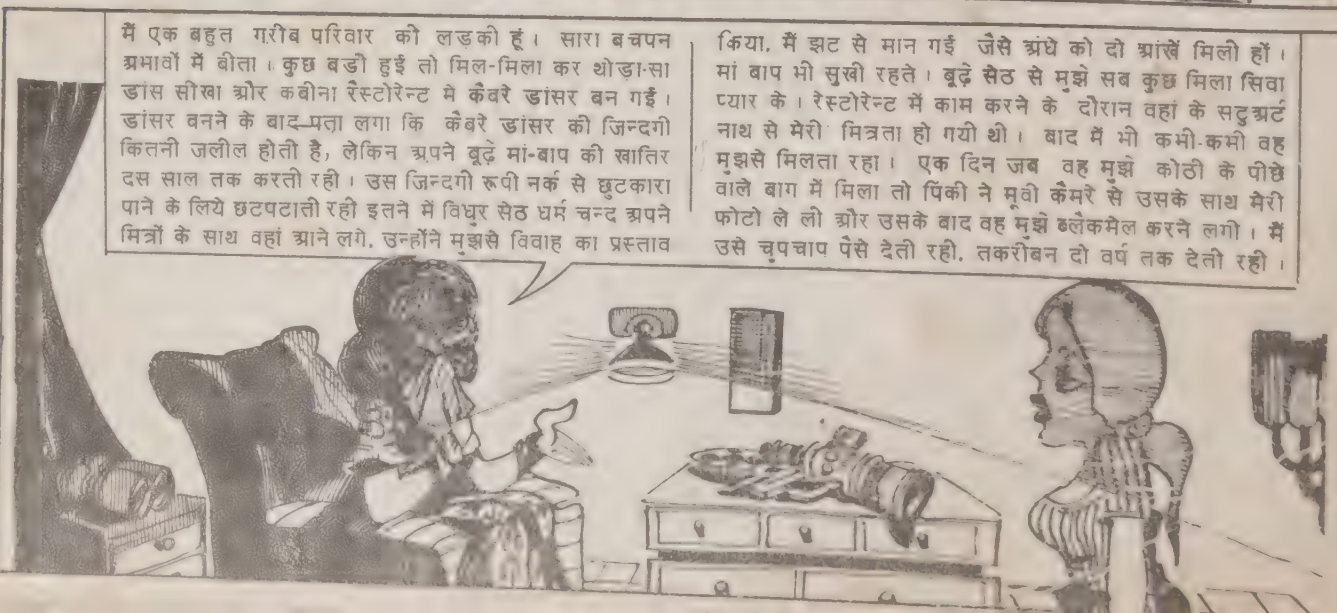 मैं एक बहुत गरीब परिवार की लड़की हूं। सारा बचपन
अभावों में बीता। कुछ बड़ी हुई तो मिल-मिला कर थोड़ा-सा
डांस सीखा और कबीना रैस्टोरेन्ट में कैबरे डांसर बन गई।
डांसर बनने के बाद पता लगा कि कैबरे डांसर की जिन्दगी
कितनी जलील होती है, लेकिन अपने बूढ़े मां-बाप की खातिर
दस साल तक करती रही। उस जिन्दगी रूपी नर्क से छुटकारा
पाने के लिये छटपटाती रही इतने में विधुर सेठ धर्म चन्द अपने
मित्रों के साथ वहां आने लगे. उन्होंने मुझसे विवाह का प्रस्ताव
किया. मैं झट से मान गई जैसे अंधे को दो आंखें मिली हों।
मां बाप भी सुखी रहते। बूढ़े सेठ से मुझे सब कुछ मिला सिवा
प्यार के। रेस्टोरेन्ट में काम करने के दौरान वहां के सटुअर्ट
नाथ से मेरी मित्रता हो गयी थी। बाद में भी कभी-कभी वह
मुझसे मिलता रहा। एक दिन जब वह मुझे कोठी के पीछे
वाले बाग में मिला तो पिंकी ने मूवी कैमरे से उसके साथ मेरी
फोटो ले ली और उसके बाद वह मुझे ब्लैकमेल करने लगी। मैं
उसे चुपचाप पैसे देती रही. तकरीबन दो वर्ष तक देती रही।